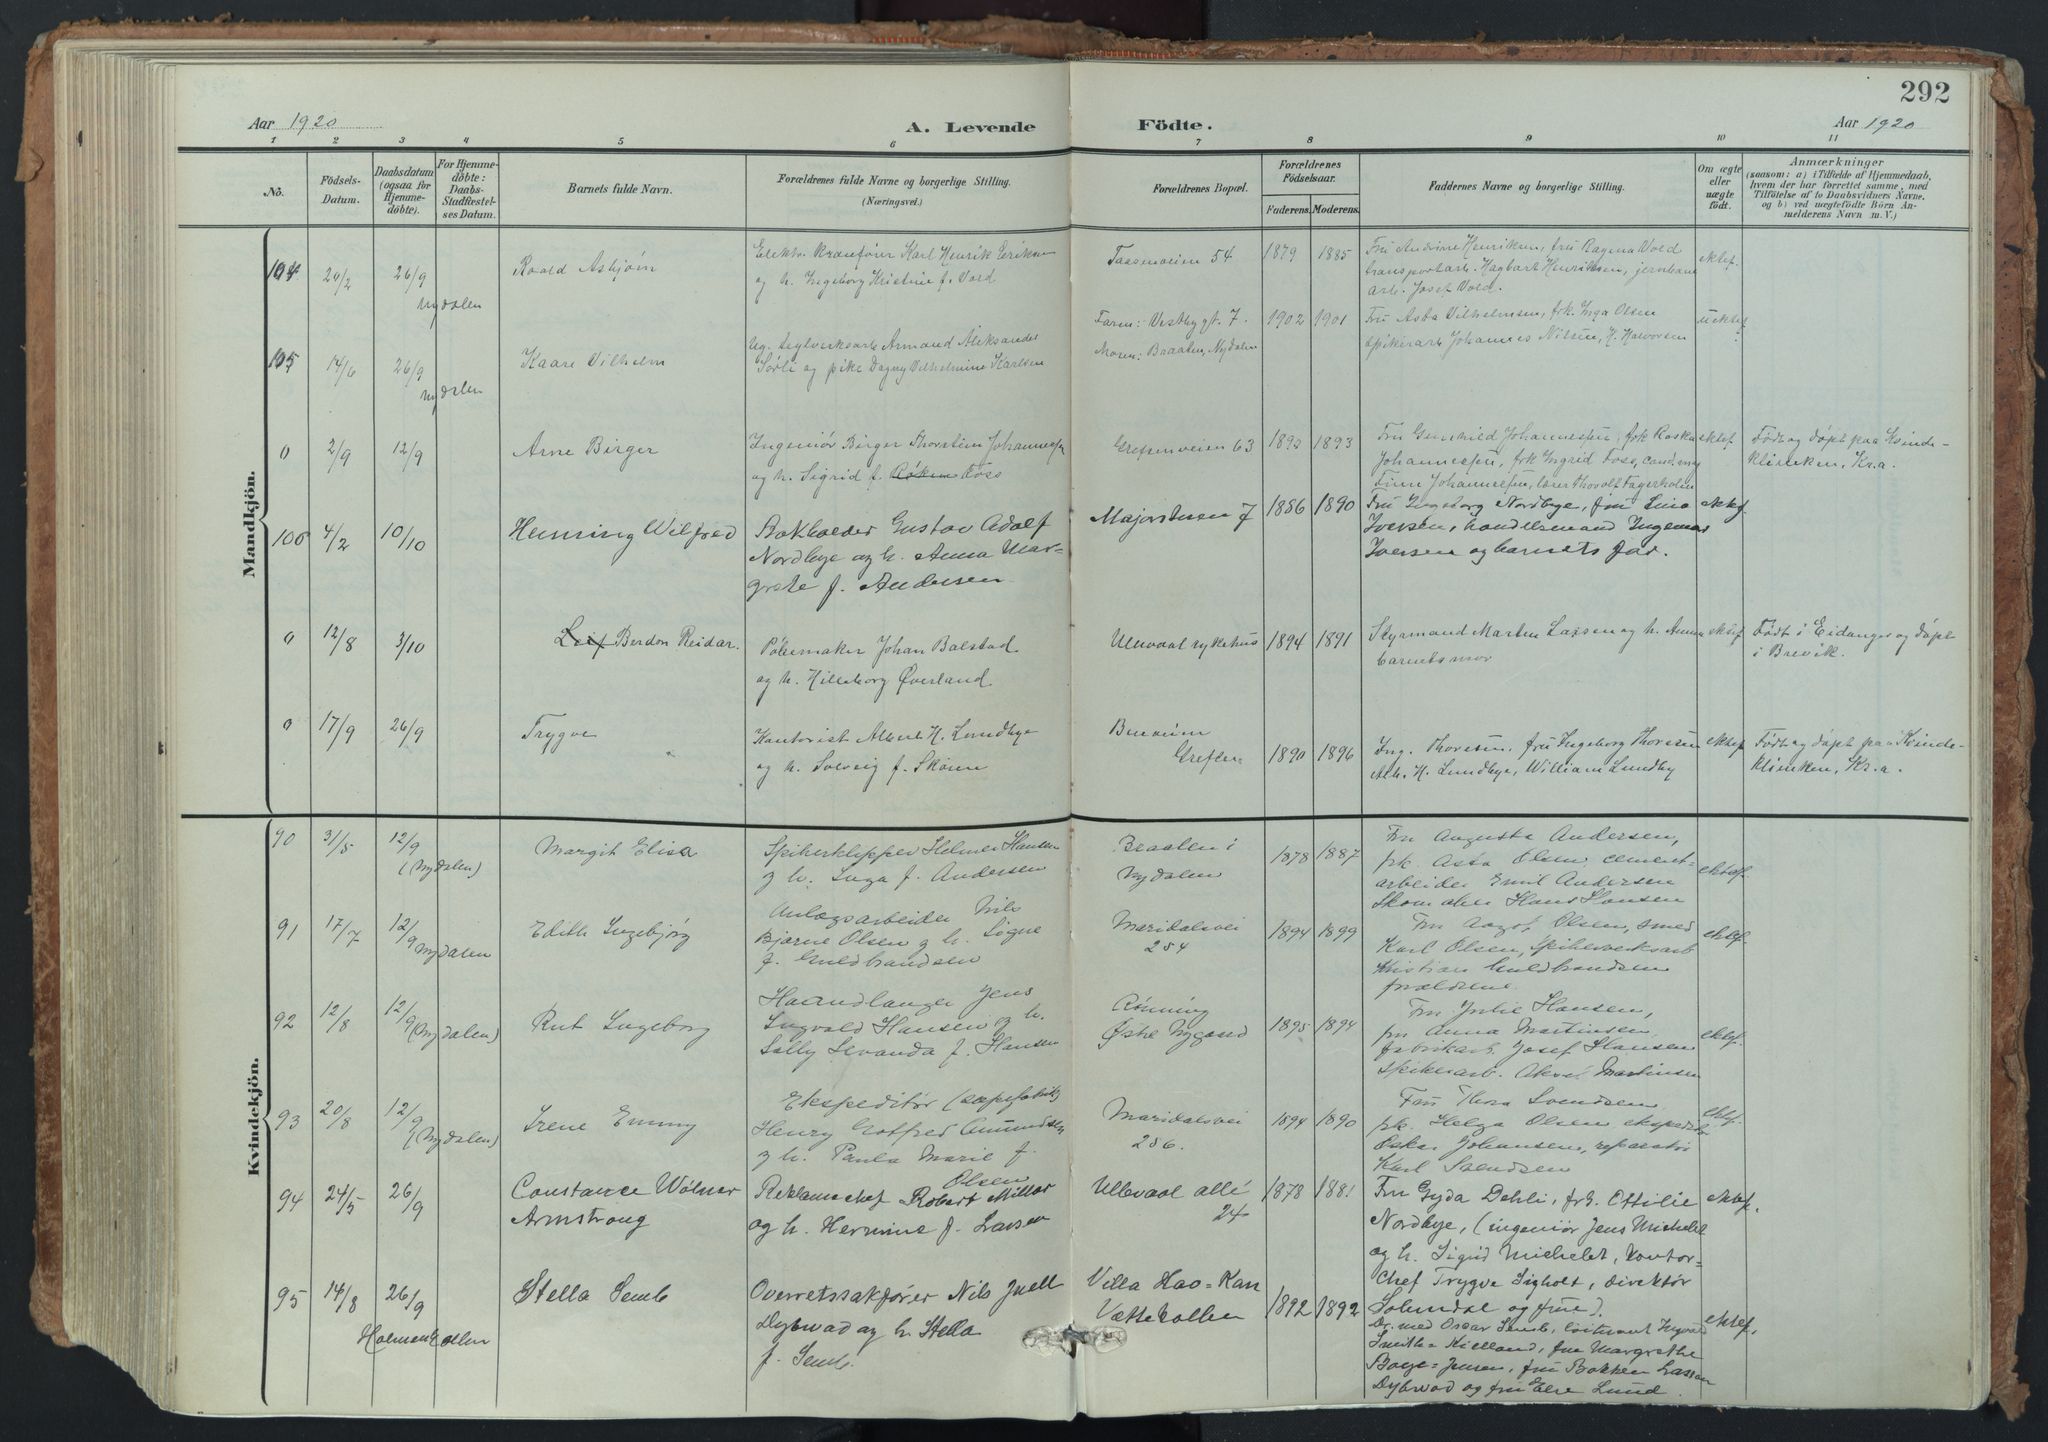 292
Aar 1920
A. Levende
Födte.
Aar 1920
1 2 3 4 5 6 7 8 9 10 11
No.
Födsels-
Datum.
Daabsdatum
(ogsaa for
Hjemme-
döbte).
For Hjemme-
döbte:
Daabs-
Stadfæstel-
ses Datum.
Barnets fulde Navn.
Forældrenes fulde Navne og borgerlige Stilling.
(Næringsvei.)
Forældrenes Bopæl.
Forældrenes
Födselsaar.
Faderens.
Moderens.
Faddernes Navne og borgerlige Stilling.
Om ægte
eller
uægte
födt.
Anmærkninger
(saasom: a) i Tilfælde af Hjemmedaab,
hvem der har forrettet samme, med
Tilföielse af to Daabsvidners Navne,
og b) ved uægtefödte Börn An-
melderens Navn m. V.)
Mandkjön.
104 20/2 26/9 Nydalen
Roald Asbjørn
Elektr. kranfører Karl Henrik Eriksen
og h. Ingeborg Kristine f. Vold
Taasenveien 54
1879 1885
Fru Andrine Henriksen, fru Ragna Vold
transportarb. Hagbart Henriksen, jernbane
arb. Josef Vold.
ektef.
105 14/6 26/9 Nydalen
Kaare Vilhelm
Ug. teglverksarb. Armand Aleksander
Sørli og pike Dagny Vilhelmine Karlsen
Faren: Vestbygt. 7.
Moren: Braaten, Nydalen
1902 1901
Fru Asta Vilhelmsen, frk. Inga Olsen
spikerarb Johannes Nilsen, H. Halvorsen
uektef
0 2/9 12/9
Arne Birger
Ingeniør Birger Thorstein Johannessen
og h. Sigrid f. Foss
Grefsenveien 63
1892 1893
Fru Gunhild Johannessen, frk Roska
Johannessen, frk Ingrid Foss, cand.
Finn Johannessen, Thorvalt Fagerholm
ektef
Født og døpt paa Kvinde-
kliniken, Kr.a.
106 4/2 10/10
Henning Wilfred
Bokholder Gustav Adolf
Nordbye og h. Anna Mar-
grete f. Andersen
Majorstuen 7
1886 1890
Fru Ingeborg Nordbye, fru Lina
Iversen, handelsmand Ingemar
Iversen og barnets far.
ektef
0 12/8 3/10
Leif Berdon Reidar.
Pølsemaker Johan Balstad
og h. Hilleborg Øverland
Ullevaal sykehus
1894 1891
Styrmand Martin Lassen og h. Anna
barnets mor
ektef
Født i Eidanger og døpt
i Brevik.
0 17/9 26/9
Trygve
Kontorist Albert H. Lundbye
og h. Solveig f. Skøien
Grefsen
1890 1896
Ing. Thoresen, fru Ingeborg Thoresen
Alb. H. Lundbye, William Lundby
ektef
Født og døpt paa Kvinde-
kliniken, Kr.a.
Kvindekjön.
90 31/5 12/9 (Nydalen)
Margit Elisa
Spikerklipper Helmer Hansen
g h. Inga f. Andersen
Braaten i
Nydalen
1878 1887
Fru Augusta Andersen,
frk. Asta Olsen cement-
arbeider Emil Andersen
Skomaker Hans Hansen
ektef.
91 17/7 12/9 Nydalen
Edith Ingebjørg
Anlægsarbeider Nils
Bjarne Olsen g h. Signe
f. Guldbrandsen
Maridalsvei
254
1894 1899
Fru Aagot Olsen, smed
Karl Olsen, Spikerverksarb
Kristian Guldbrandsen
forældrene.
ektef.
92 12/8 12/9 (Nydalen)
Rut Ingeborg
Haandlanger Jens
Ingvald Hansen g h.
Sally Sevanda f. Hansen
Rønning
Østre Nygaard
1895 1894
Fru Julie Hansen,
fru Anna Martinsen
fabrikarb. Josef Hansen
Spikerarb. Martinsen
ektef.
93 20/8 12/9 (Nydalen)
Irene Emmy
Ekspeditør (sæpefabrik)
Henry Gotfred Amundsen
g h. Paula Marie f.
Olsen
Maridalsvei
256.
1894 1890
Fru Thora Svendsen
frk. Helga Olsen, ekspeditør
Oskar Johansen, reparatør
Karl Svendsen
ektef.
94 24/5 26/9
Constance Wølner
Armstrong
Reklamechef Robert Millar
og h. Hermine f. Larsen
Ullevaal allé
24
1878 1881
Fru Gyda Dehli, frk. Ottilie
Nordbye, (ingeniør Jens Michelet
og h. Sigrid Michelet, kontor-
chef Trygve Sigholt, direktør
Solundal og frue).
ektef.
95 14/8 26/9 Holmenkollen
Stella Semb
Overretssakfører Nils Juell
Dybwad og h. Stella
f. Semb.
Villa Hao-Kan
Vettakollen
1892 1892
Dr. med Oscar Semb, løitnant Ingvald
Smith-Kielland, fru Margrethe
Boye-Jensen, fru Bokken Lasson
Dybwad og fru Else Lund.
ektef.